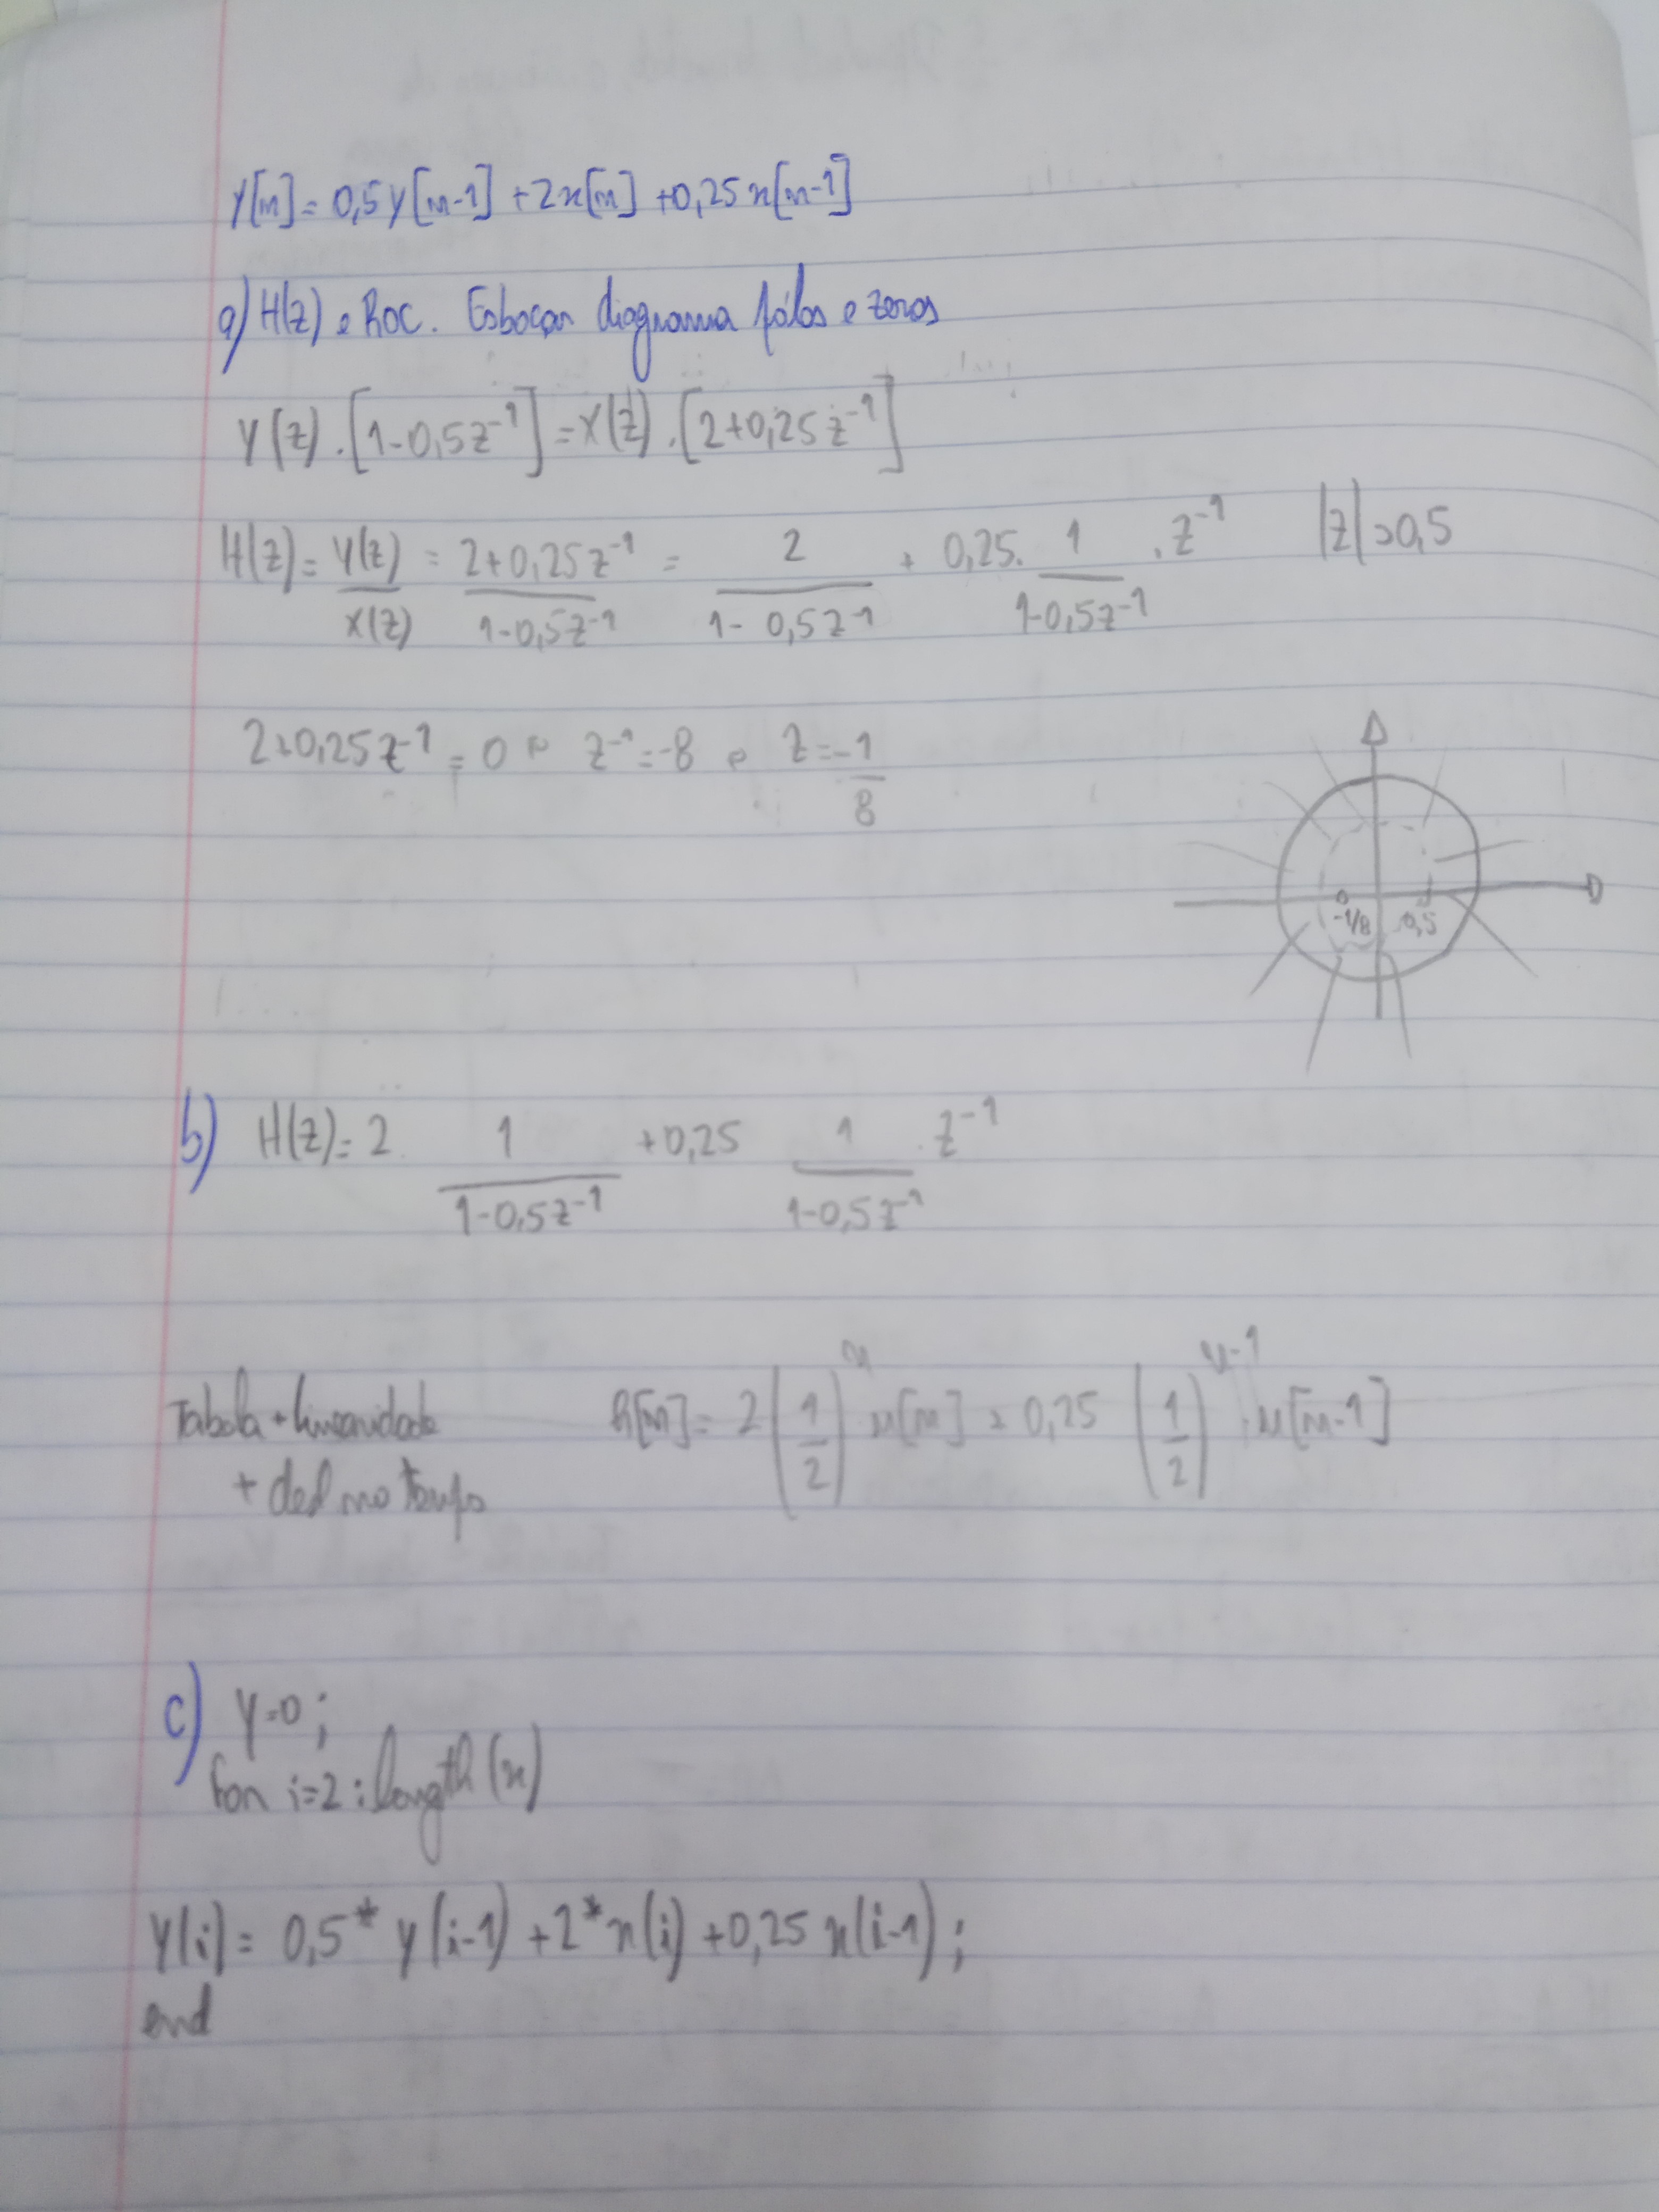 y[n] = 0,5y[n-1] + 2x[n] + 0,25x[n-1]
a) H(z) e ROC. Esboçar diagrama pólos e zeros
Y(z) . [1-0,5z^-1] = X(z) . [2+0,25z^-1]
H(z) = Y(z)/X(z) = (2+0,25z^-1)/(1-0,5z^-1) = 2/(1-0,5z^-1) + 0,25 . 1/(1-0,5z^-1) . z^-1 |z|>0,5
2+0,25z^-1 = 0 z^-1 = -8 z = -1/8
-1/8 0,5
b) H(z) = 2 . 1/(1-0,5z^-1) + 0,25 1/(1-0,5z^-1) . z^-1
Tabela + linearidade
+ desl no tempo
h[n] = 2 (1/2)^n u[n] + 0,25 (1/2)^n-1 . u[n-1]
c) y=0;
for i=2:length(x)
y(i) = 0,5* y(i-1) + 2*x(i) + 0,25 x(i-1);
end